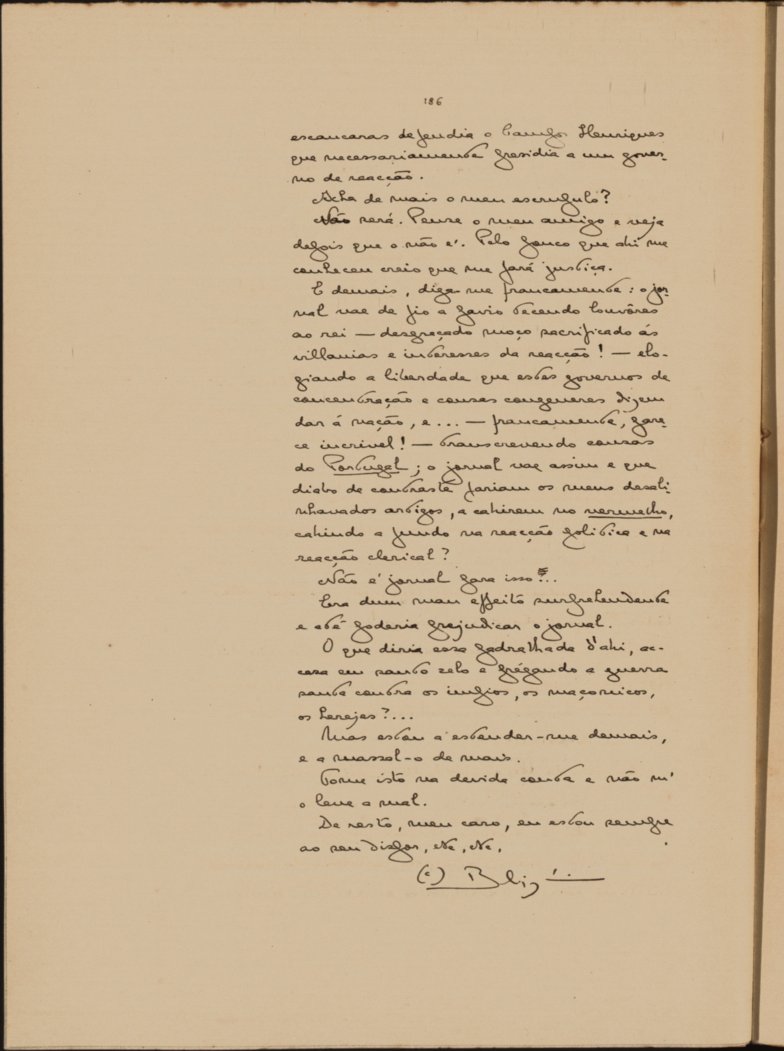 186
escancaras defendia o Campos Henriques
que necessariamente presidia a um gover-
no de reacção.
Acha de mais o meu escrupulo?
Não será. Pense o meu amigo e veja
depois que o não é. Pelo pouco que ahi me
conhecem creio que me fará justiça.
E demais, diga-me francamente: o jor-
nal vae de fio a pavio tecendo louvôres
ao rei — desgraçado moço sacrificado ás
villanias e interesses da reacção! — elo-
giando a liberdade que estes governos de
concentração e cousas congeneres dizem
dar á nação, e... — francamente, pare-
ce incrivel! — transcrevendo cousas
do Portugal; o jornal vae assim e que
diabo de contraste fariam os meus desali-
nhavados artigos, a cahirem no vermelho,
cahindo a fundo na reacção politica e na
reacção clerical?
Não é jornal para isso!..
Era dum mau effeito surprehendente
e até poderia prejudicar o jornal.
O que diria essa padralhada d'ahi, ac-
cesa em santo zelo e prégando a guerra
santa contra os impios, os maçonicos,
os herejes?...
Mas estou a estender-me demais,
e a massal-o de mais.
Tome isto na devida conta e não m'
o leve a mal.
De resto, meu caro, eu estou sempre
ao seu dispor, etc, etc.